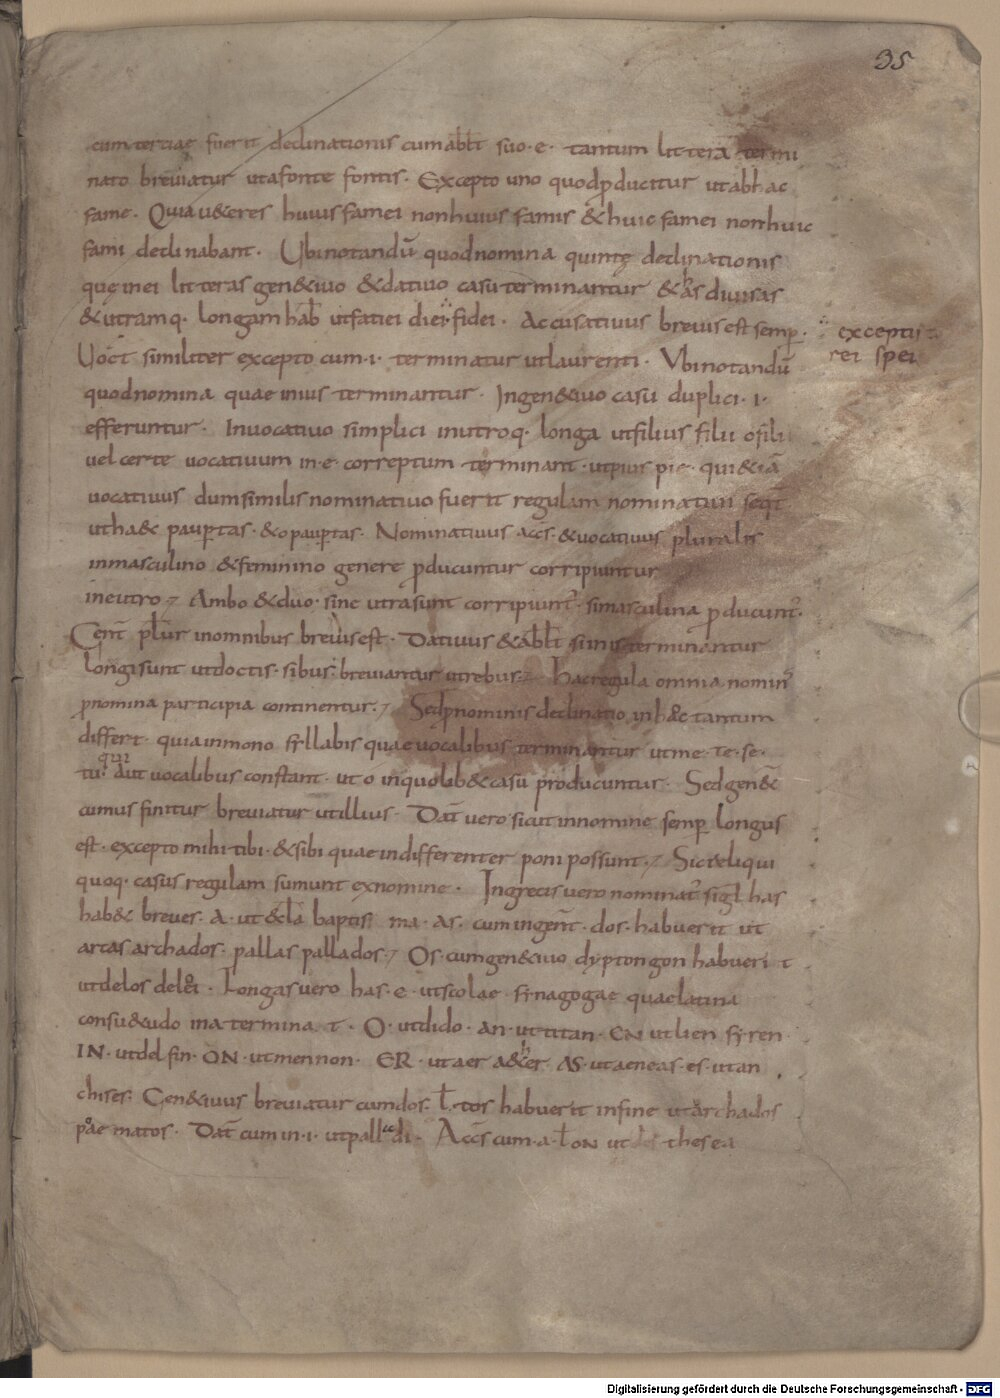 35
cum terciae fuerit declinationis cum abłt suo · e · tantum littera termi
nato breviatur ut a fonte fontis · Excepto uno quod ꝓducitur ut ab hac
fame · Quia u&eres huius famei non huius famis & huic famei non huic
fami declinabant · Ubi notandū quod nomina quintę declinationis
quę in ei litteras gen&iuo & datiuo casu terminantur & as diuisas
& utramq · longam hab̄ ut faciei diei fidei · Accusatiuus breuis est semp ·
exceptis
rei spei
Uoct̄ similiter excepto cum · i · terminatur ut laurenti · Ubi notandū
quod nomina quae in ius terminantur · In gen&iuo casu duplici · i ·
efferuntur · In uocatiuo simplici in utroq · longa ut filius filii o fili
uel certe uocatiuum in · e · correptum terminant · ut pius pie · qui & iā
uocatiuus dum similis nominatiuo fuerit regulam nominatiui seqt̄
ut haec paup̱tas · & o paup̱tas · Nominatiuus accs̄ · & uocatiuus pluralis
in masculino & feminino genere ꝓducuntur corripiuntur
in eutro · Ambo & duo · sine utra sunt corripiunt̄ · si masculina ꝓducunt̄ ·
Gent̄ plur̄ in omnibus breuis est · Datiuus & abłt si in is terminantur
longi sunt ut doctis · si bus : breuiantur ut rebus · Hac regula omnia nomin̄
ꝓnomina participia continentur · Sed ꝓnominis declinatio in h& tantum
differt · quia in monosyllabis quae uocalibus terminantur ut me · te · se ·
tu · aut uocalibus constant · ut o in quolib& casu producuntur · Sed gen&
cum us finitur breuiatur ut illius · Dat̄ uero sicut in nomine semp longus
est · excepto mihi · tibi · & sibi quae indifferenter poni possunt · Sic reliqui
quoq · casus regulam sumunt ex nomine · In grecis uero nominat̄ sigl̄ has
hab& breues · a · ut & l̄a baptis ma · as · cum in gent̄ · dos · habuerit ut
arcas archados · pallas pallados · Os · cum gen&iuo dyptongon habueri t
ut delos deloi · Longas uero has · e · ut scolae · synagogae quae latina
consu&udo in a termina t · O · ut dido · an · ut titan · EN ut lien syren
IN · ut delfin · ON · ut mennon · ER · ut aer a&her · AS · ut aeneas · es · ut an
chises · Gen&iuus breuiatur cum dos · ł · tos habuerit in fine ut archados
poematos · Dat̄ cum in · i · ut palladi · Accs̄ cum · a · ł on ut thesea